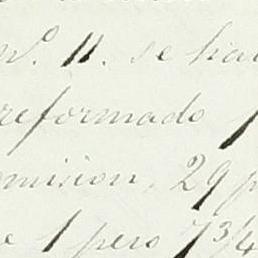 nº. 11. se ha
reformado
mision, 29 p
e 1 pero 7 3/4